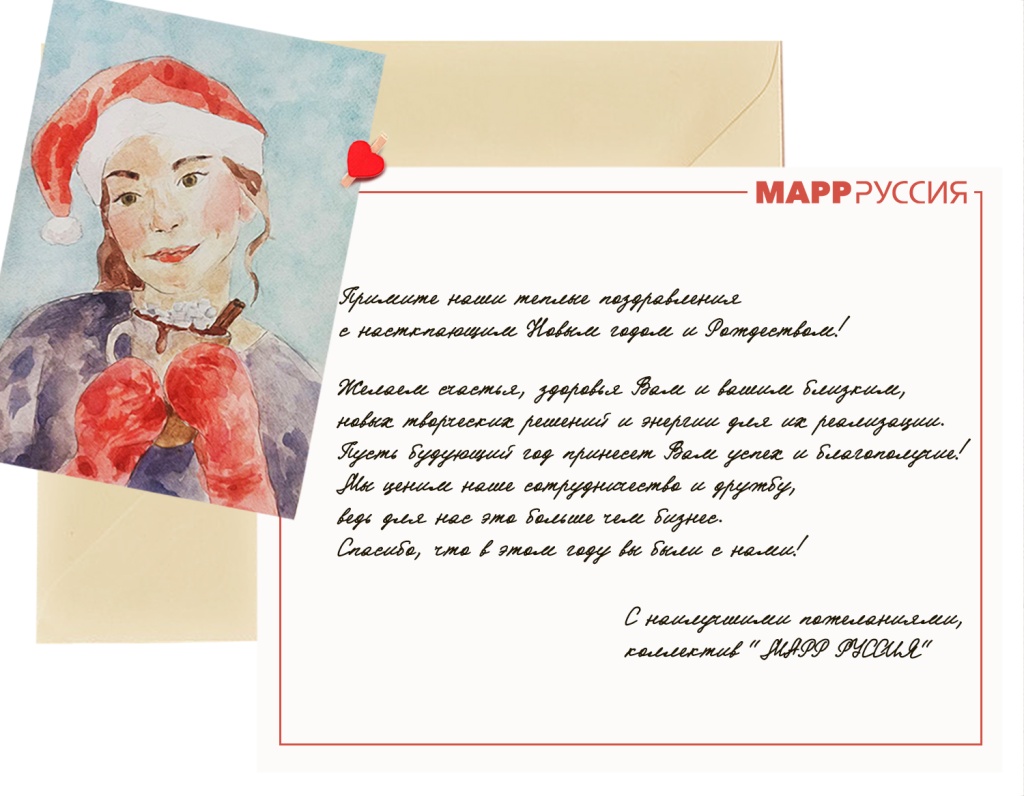 МАРР РУССИЯ
Примите наши теплые поздравления
с насткпающим Новым годом и Рождеством!
Желаем счастья, здоровья Вам и вашим близким,
новых творческих решений и энергии для их реализации.
Пусть будующий год принесет Вам успех и благополучие!
Мы ценим наше сотрудничество и дружбу,
ведь для нас это больше чем бизнес.
Спасибо, что в этом году вы были с нами!
С наилучшими пожеланиями,
коллектив "МАРР РУССИЯ"